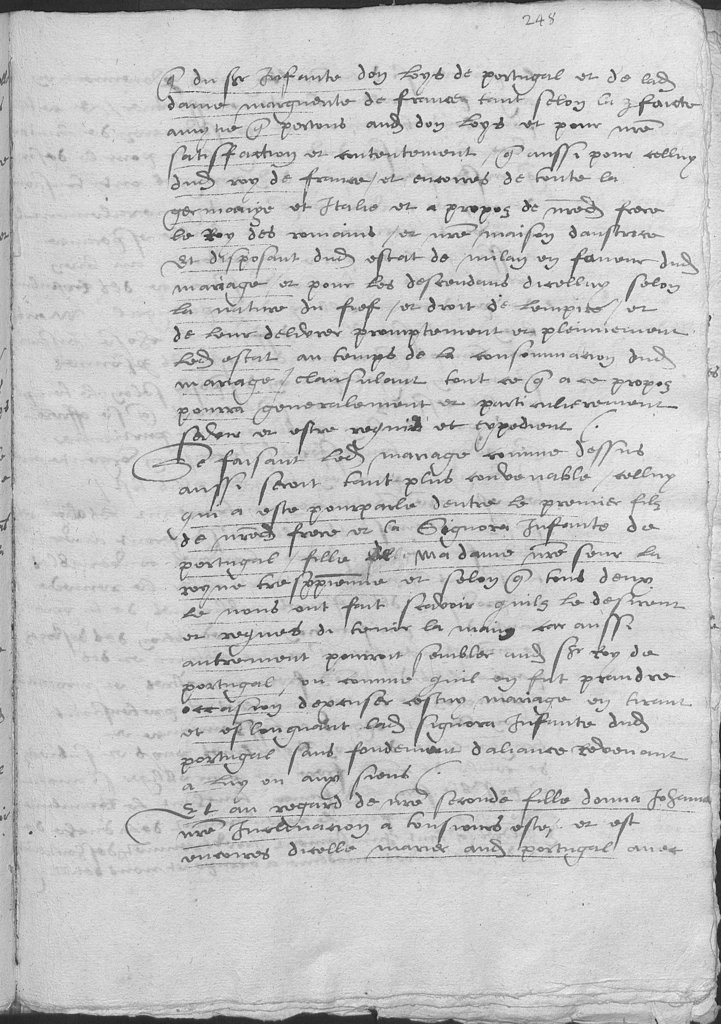 248
q̃ du sr Infante don loys de portugal et de lad
dame marguerite de france tant selon la p̱faicte
amytie q̃ portons aud don loys et pour nr̃e
satisfaction et contentement / q̃ aussi pour celluy
dud roy de france / et encoires de toute la
germanye et Italie et a propoz de nr̃ed frere
le Roy des romains / et nr̃e maison daustrice
Et disposant dud estat de milan en faveur dud
mariage et pour les descendans dicelluy selon
la nature du fief / et droit de lempire / et
de leur delivrer promptement et plainnement
led estat au temps de la consommacion dud
mariage / clausulant tout ce q̃ a ce propoz
pourra generalement et particulierement
servir et estre requis et expedient /.
Se faisant led mariage comme dessus
aussi seroit tant plus convenable / celluy
qui a este pourparle dentre le premier filz
de nr̃ed frere et la Signora Infante de
portugal / fille de Madame nr̃e seur la
royne trespp̃ienne et selon q̃ tous deux
le nous ont fait scavoir quilz le desirent
et requis di tenir la main car aussi
autrement pourroit sembler aud sr Roy de
portugal / ou comme quil en fut prandre
occasion depenser cestuy mariage en tirant
et eslongnant lad signora Infante dud
portugal sans fondement daliance redevenant
a luy ou aux siens /.
Et au regard de nr̃e seconde fille donna Johanna
nr̃e Inclinacion a tousiours este / et est
encoires dicelle marier aud portugal avec